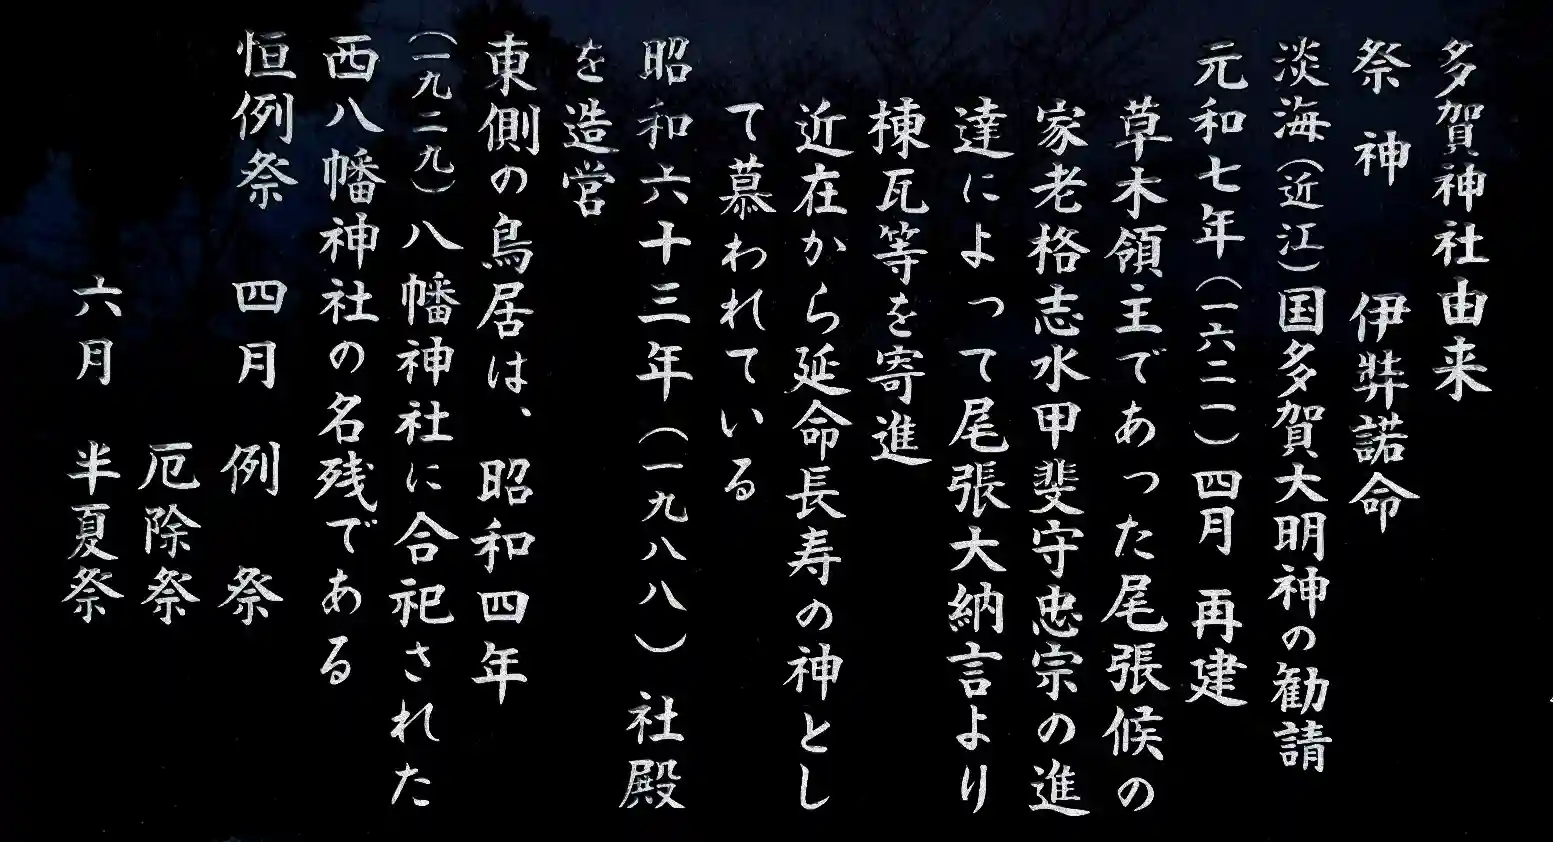 多賀神社由来
祭 神　伊弉諾命
淡海（近江）国多賀大明神の勧請
元和七年（一六二一）四月 再建
草木領主であった尾張候の
家老格志水甲斐守忠宗の進
達によって尾張大納言より
棟瓦等を寄進
近在から延命長寿の神とし
て慕われている
昭和六十三年（一九八八）社殿
を造営
東側の鳥居は、昭和四年
（一九二九）八幡神社に合祀された
西八幡神社の名残である
恒例祭　四月　例　祭
厄除祭
六月　半夏祭